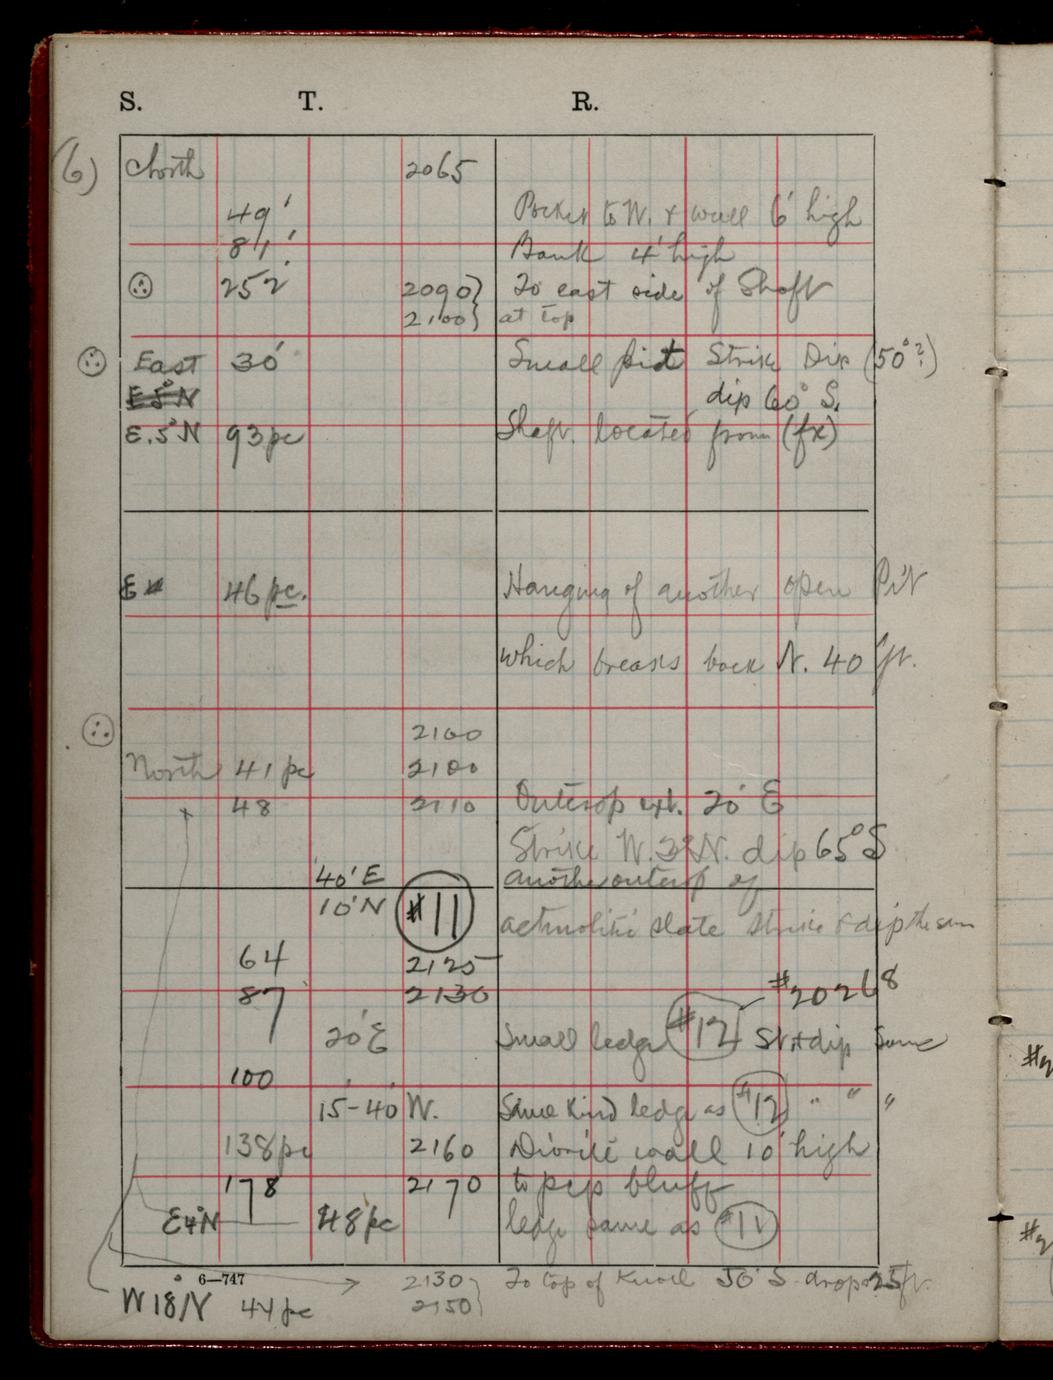 S. T. R.
(6) North 2065
49' Pocket to W. + wall 6' high
81' Bank 4' high
252' 2090} To east side of Shaft
2100} at top
East 30' Small pit Strike Dip (50°?)
E 5° N dip 60° S.
E. 5° N 93 pc Shaft. located from (fx)
E 46 pc. Hanging of another open Pit
which breaks back N. 40 ft.
2100
North 41 pc 2100
48 2110 Outcrop ext. 20' E
Strike W. N. dip 65° S
40' E another outcrop of
10' N #11 actinolitic slate strike & dip the same
64 2125
87 2130 #20268
20' E Small ledge #12 St + dip Same
100
15-40' W. Same kind ledge as #12 " " "
138 pc 2160 Diorite wall 10' high
178 2170 to top bluff
E 4° N 48 pc ledge same as #11
6—747 2130} To top of Knoll 50' S drops 25 ft.
W 18° N 44 pc 2150}